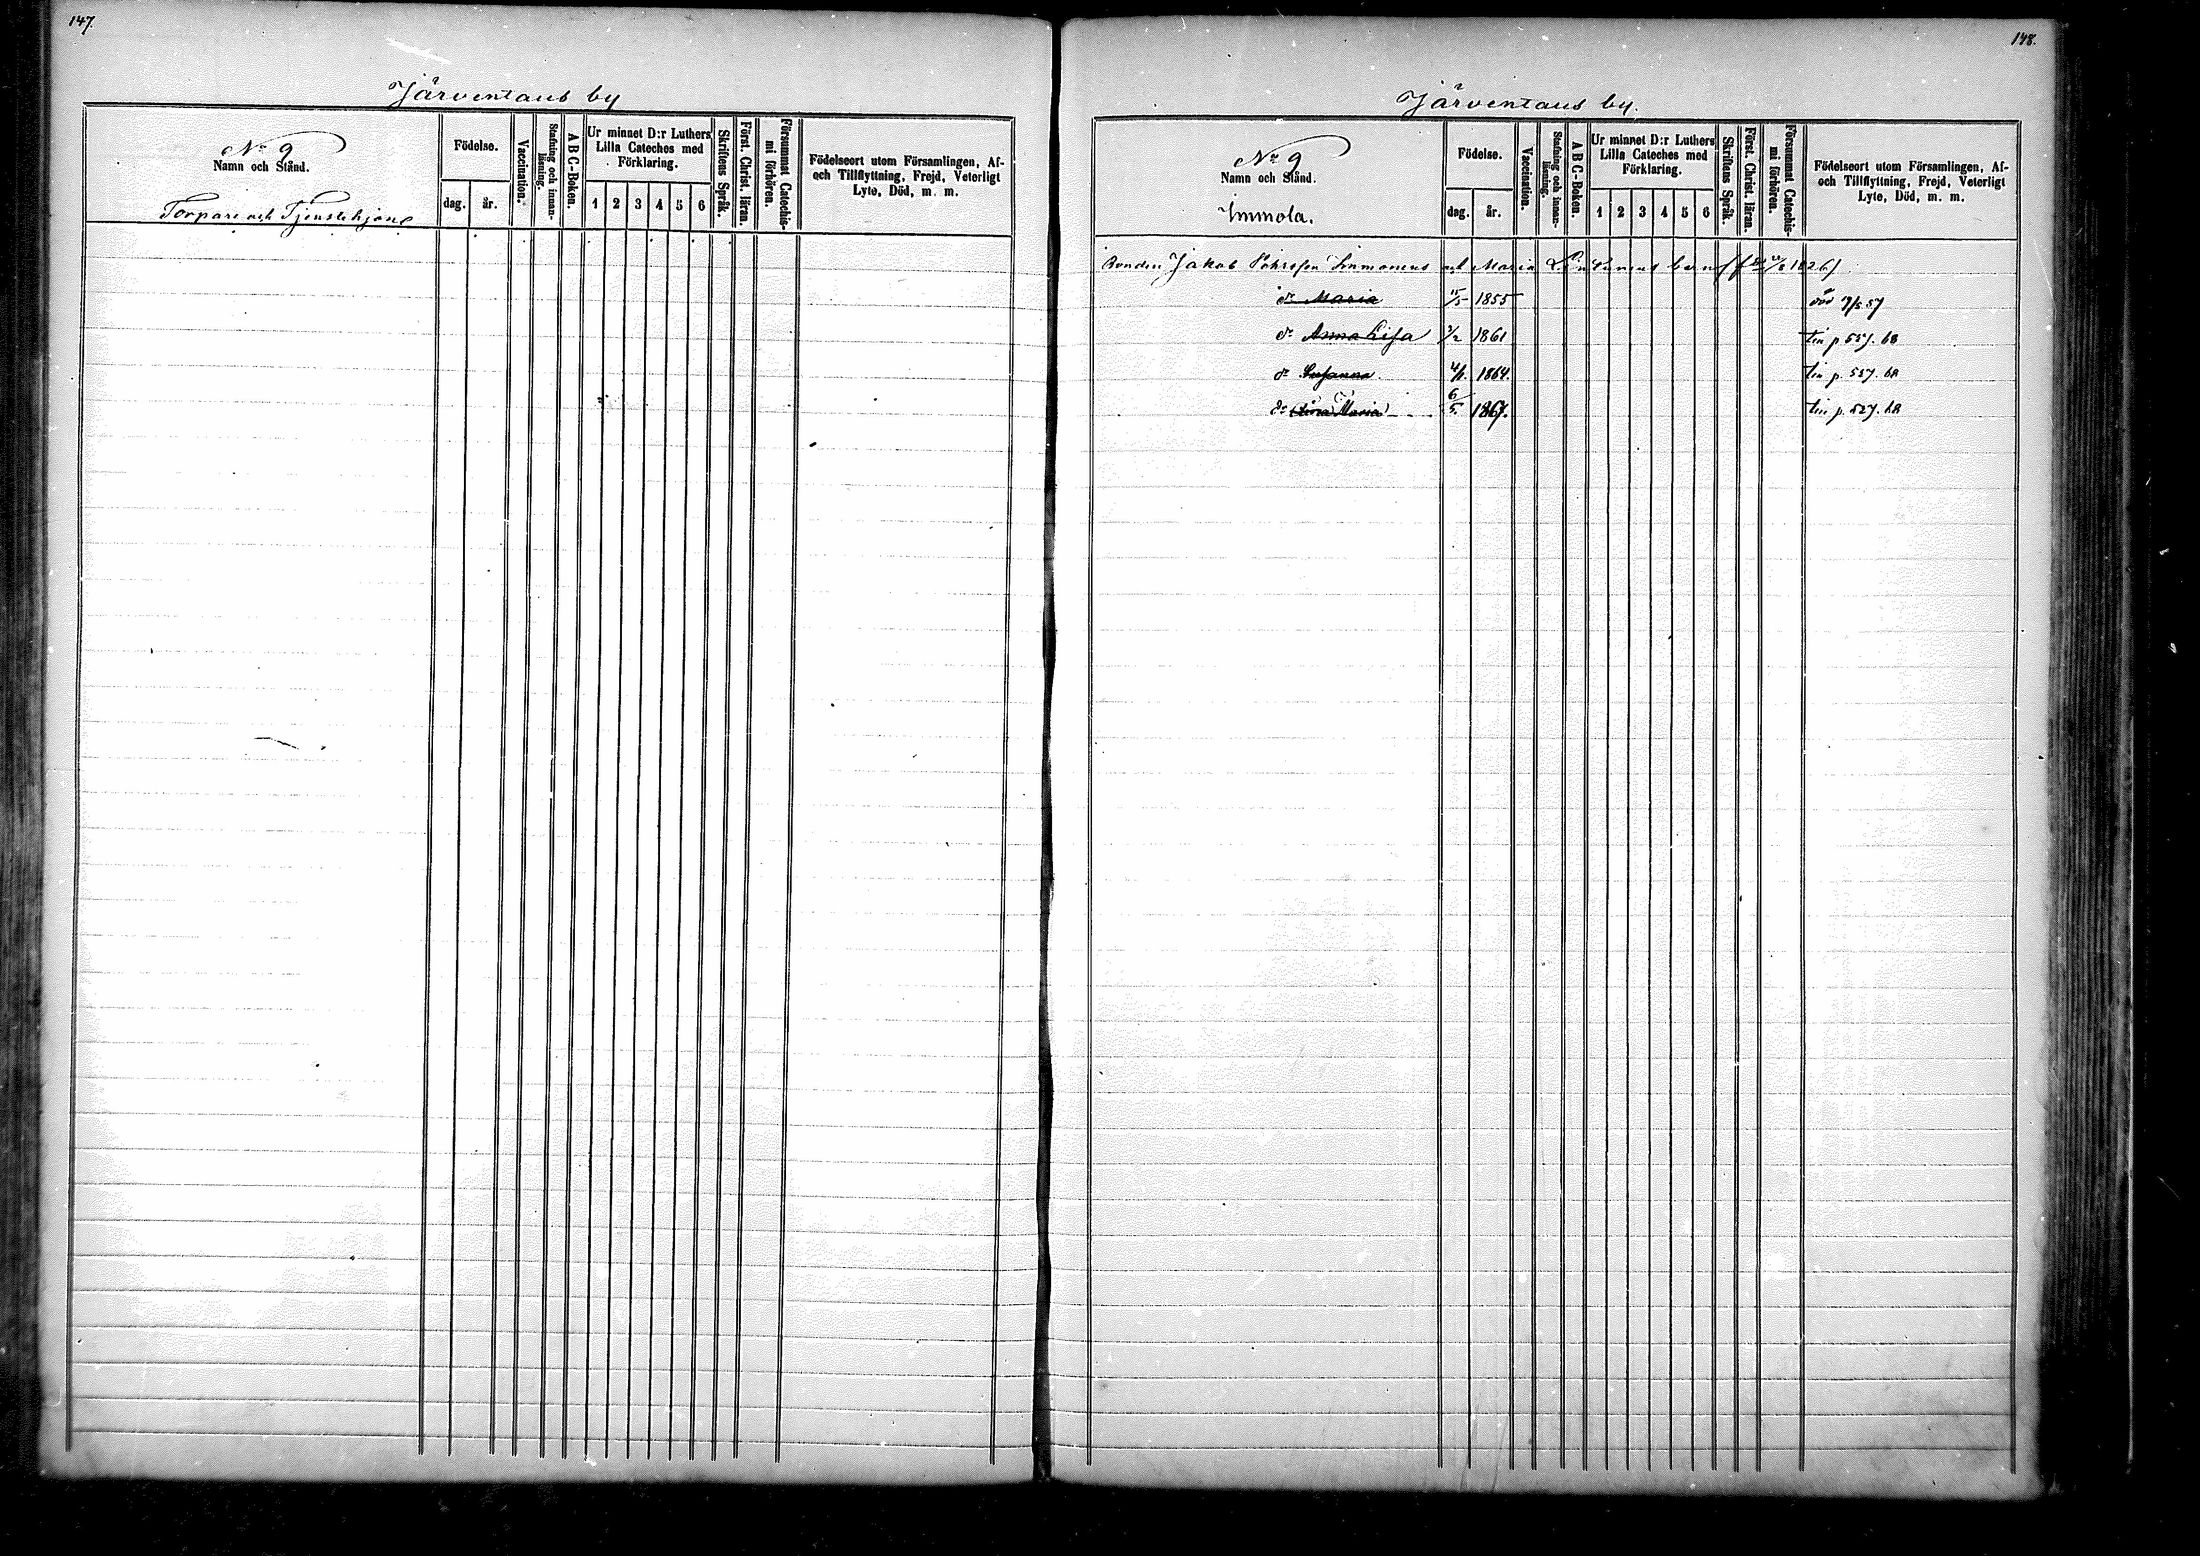 147.
Järventaus by
No 9
Namn och Stånd.
Torpare och Tjenstehjon
Födelse.
dag. år.
Vaccination.
Stafning och innan-
läsning.
A B C-Boken.
Ur minnet D:r Luthers
Lilla Cateches med
Förklaring.
1 2 3 4 5 6
Skriftens Språk.
Först. Christ. läran.
Försummat Catechis-
mi förhören.
Födelseort utom Församlingen, Af-
och Tillflyttning, Frejd, Veterligt
Lyte, Död, m. m.
148.
Järventaus by.
No 9
Namn och Stånd.
Immola.
Födelse.
dag. år.
Vaccination.
Stafning och innan-
läsning.
A B C-Boken.
Ur minnet D:r Luthers
Lilla Cateches med
Förklaring.
1 2 3 4 5 6
Skriftens Språk.
Först. Christ. läran.
Försummat Catechis-
mi förhören.
Födelseort utom Församlingen, Af-
och Tillflyttning, Frejd, Veterligt
Lyte, Död, m. m.
Bonden Jakob Immonens och Maria barn 1826)
dr Maria 15/5 1855 död 57
dr Anna Lisa 1861 p 557.
dr Susanna 1864. p. 557.
dr Maria 6/5. 1867. p. 527.